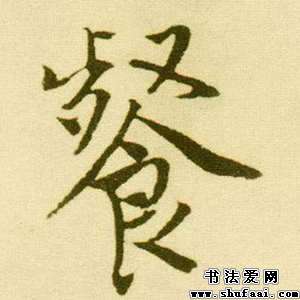 餐
书法爱网
www.shufaai.com